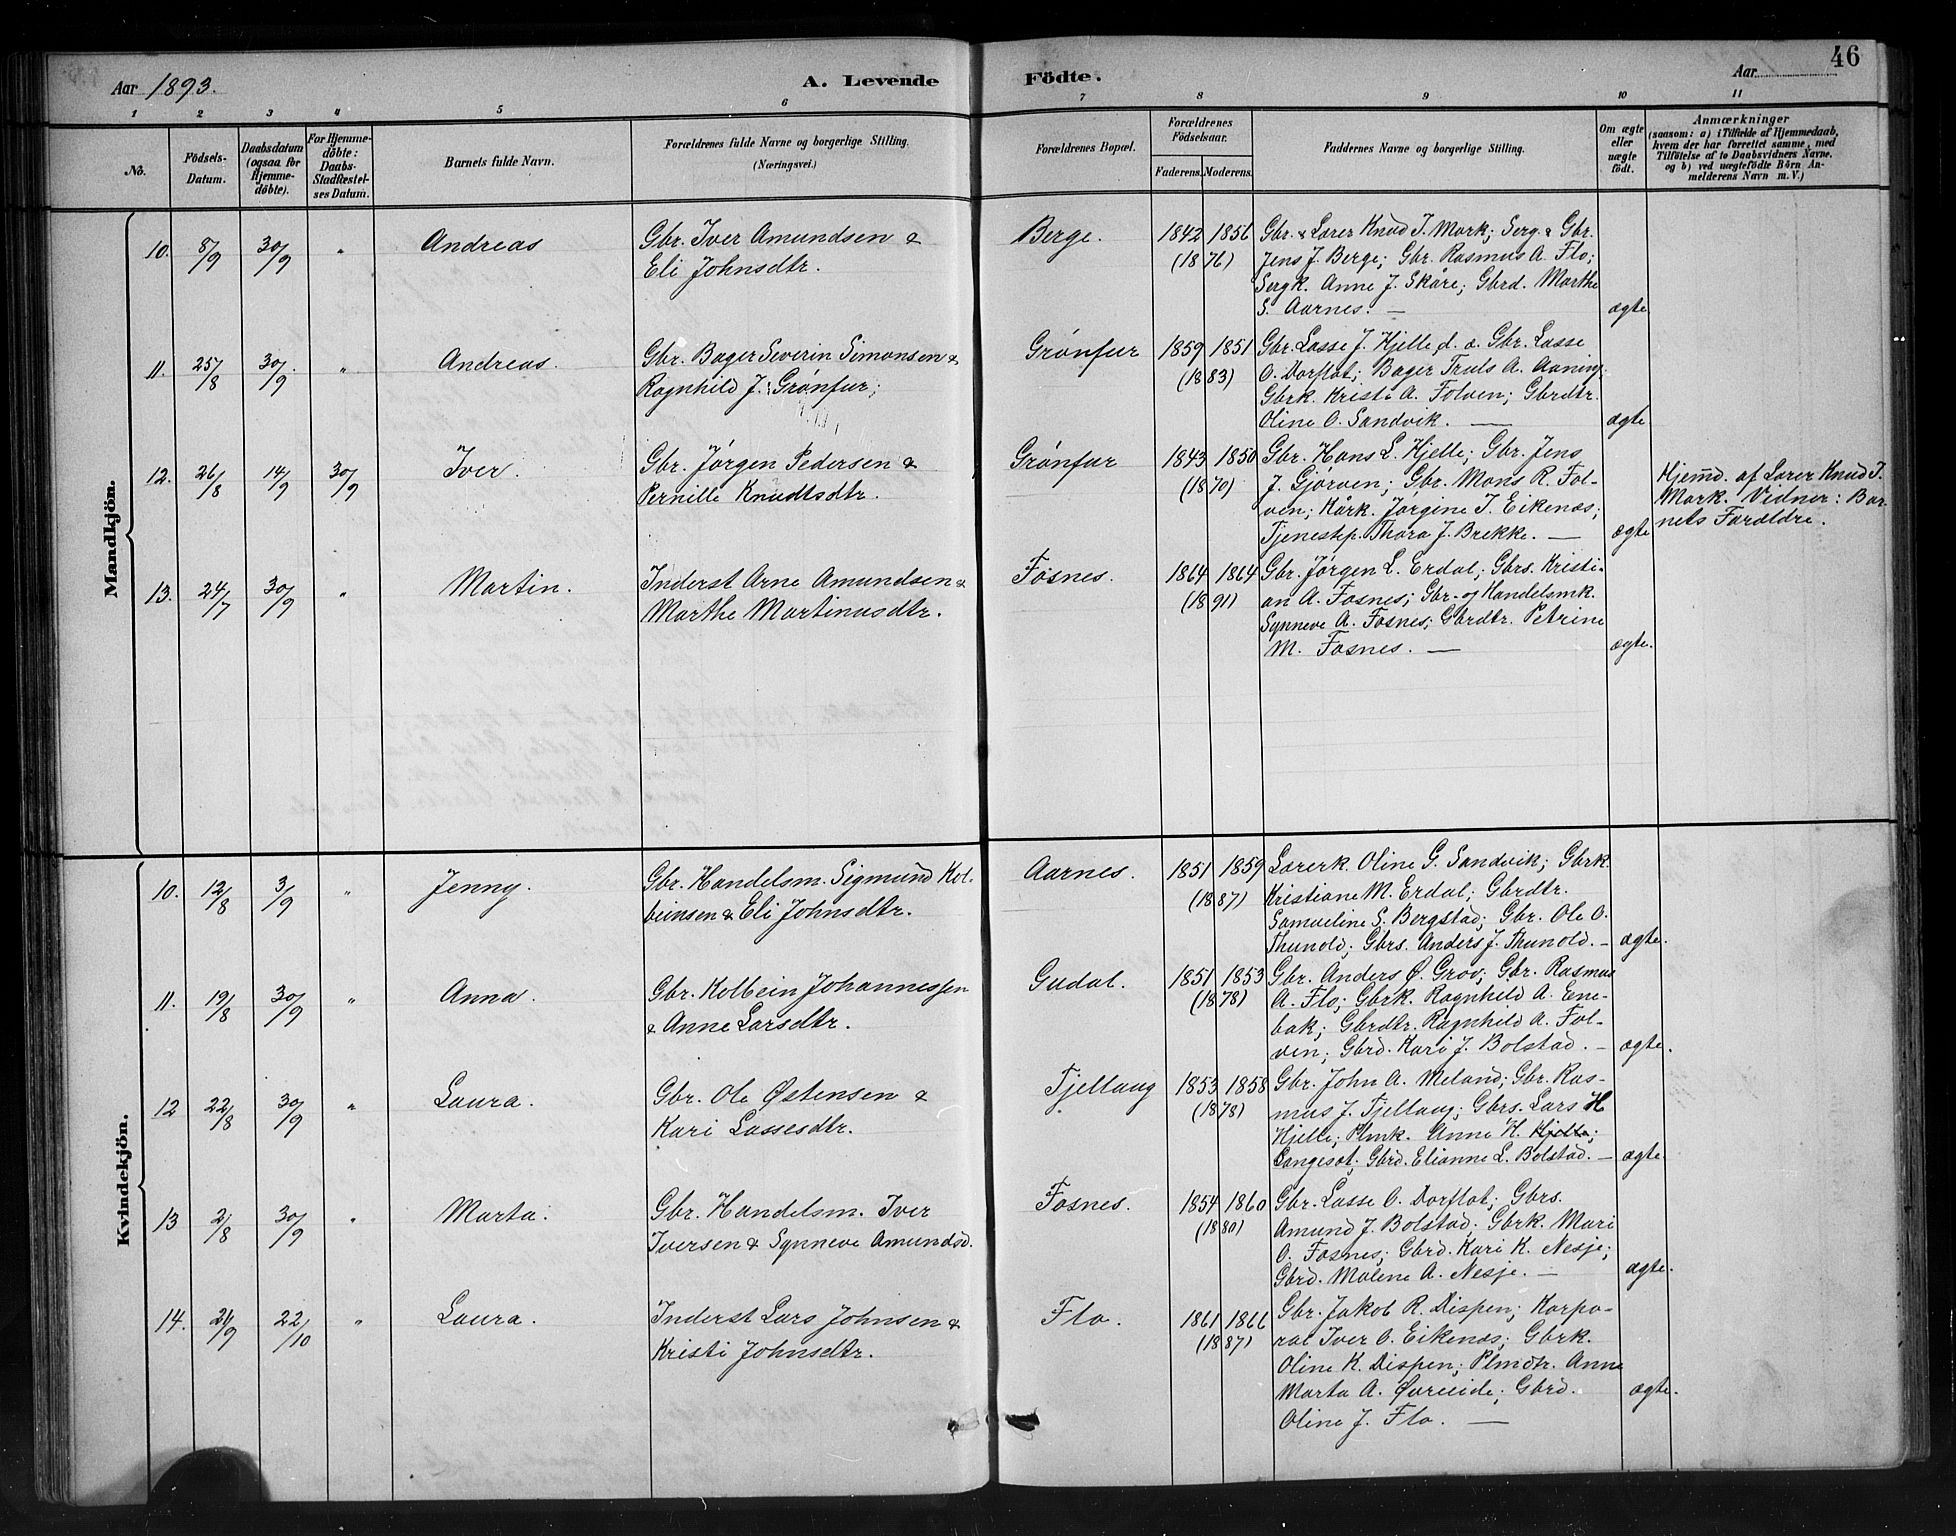 46
Aar 1893.
A. Levende
Födte.
Aar
1 2 3 4 5 6 7 8 9 10 11
No.
Födsels-
Datum.
Daabsdatum
(ogsaa for
Hjemme-
döbte).
For Hjemme-
döbte:
Daabs-
Stadfæstel-
ses Datum.
Barnets fulde Navn.
Forældrenes fulde Navne og borgerlige Stilling.
(Næringsvei.)
Forældrenes Bopæl.
Forældrenes
Födselsaar.
Faderens. Moderens.
Faddernes Navne og borgerlige Stilling.
Om ægte
eller
uægte
födt.
Anmærkninger
(saasom: a) i Tilfælde af Hjemmedaab,
hvem der har forrettet samme, med
Tilföielse af to Daabsvidners Navne.
og b) ved uægtefödte Börn An-
melderens Navn m. V.)
Mandkjön.
10. 8/9 30/9 " Andreas
Gbr. Iver Amundsen &
Eli Johnsdtr.
Berge. 1842 1856
(1876)
Gbr. & Lærer Knud I. Mork; Serg. & Gbr.
Jens J. Berge; Gbr. Rasmus A. Flo;
Sergk. Anne J. Skåre; Gbrd. Marthe
S. Aarnes. —
ægte
11. 25/8 30/9 " Andreas.
Gbr. Bager Severin Simonsen &
Ragnhild J. Grønfur;
Grønfur 1859 1851
(1883)
Gbr. Lasse J. Hjelle, d. a. Gbr. Lasse
O. Dorflot; Bager Truls A. Aaning;
Gbrk. Kristi A. Folven; Gbrdtr.
Oline O. Sandvik. —
ægte
12. 26/8 14/9 30/9 Iver.
Gbr. Jørgen Pedersen &
Pernille Knudtsdtr.
Grønfur 1843 1850
(1870)
Gbr. Hans L. Hjelle; Gbr. Jens
J. Gjørven; Gbr. Mons R. Fol-
ven; Kårk. Jørgine I. Eikenæs;
Tjenestep. Thora J. Brekke. —
ægte
Hjemd. af Lærer Knud I.
Mork. Vidner: Bar-
nets Forældre.
13. 24/7 30/9 " Martin.
Inderst Arne Amundsen &
Marthe Martinusdtr.
Fosnes. 1864 1864
(1891)
Gbr. Jørgen L. Erdal; Gbrs. Kristi-
an A. Fosnes; Gbr- og Handelsmk.
Synneve A. Fosnes; Gbrdtr. Petrine
M. Fosnes. —
ægte.
Kvindekjön.
10. 12/8 3/9 " Jenny.
Gbr. Handelsm. Sigmund Kol-
beinsen & Eli Johnsdtr.
Aarnes. 1851 1859
(1887)
Lærerk. Oline G. Sandvik; Gbrk.
Kristiane M. Erdal; Gbrdtr.
Samueline S. Bergstad; Gbr. Ole O.
Thunold; Gbrs. Anders J. Thunold. —
ægte.
11. 19/8 30/9 " Anna.
Gbr. Kolbein Johannessen
& Anne Larsdtr.
Gudal. 1851 1853
(1878)
Gbr. Anders Ø. Grov; Gbr. Rasmus
A. Flo; Gbrk. Ragnhild A. Ene-
bak; Gbrdtr. Ragnhild A. Fol-
ven; Gbrd. Kari J. Bolstad. —
ægte.
12 22/8 30/9 " Laura.
Gbr. Ole Østensen &
Kari Lassesdtr.
Tjellaug 1853 1858
(1878)
Gbr. John A. Meland; Gbr. Ras-
mus J. Tjellaug; Gbrs. Lars H
Hjelle; Plmk. Anne H. Hjelle;
Langesæt; Gbrd. Elianne L. Bolstad. —
ægte.
13 2/8 30/9 " Marta.
Gbr. Handelsm. Iver
Iversen & Synneve Amundsd.
Fosnes. 1854 1860
(1880)
Gbr. Lasse O. Dorflot; Gbrs.
Amund J. Bolstad. Gbrk. Mari
O. Fosnes; Gbrd. Kari K. Nesje;
Gbrd. Malene A. Nesje. —
ægte.
14. 24/9 22/10 " Laura.
Inderst Lars Johnsen &
Kristi Johnsdtr.
Flo. 1861 1866
(1887)
Gbr. Jakob R. Dispen; Korpo-
ral Iver O. Eikenæs; Gbrk.
Oline K. Dispen; Plmdtr. Anne
Marta A. Øvreeide; Gbrd.
Oline J. Flo. —
ægte.